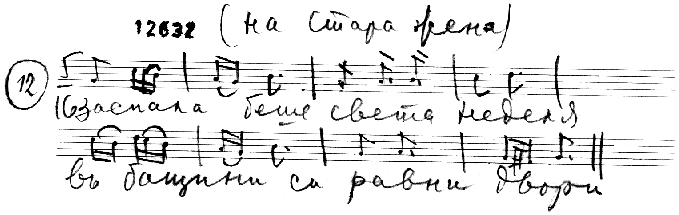 12632 (на стара жена)
12
Заспала беше света неделя
въ бащини си равни двори